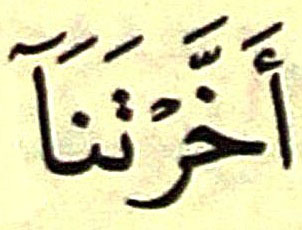 أَخَّرْتَنَآ